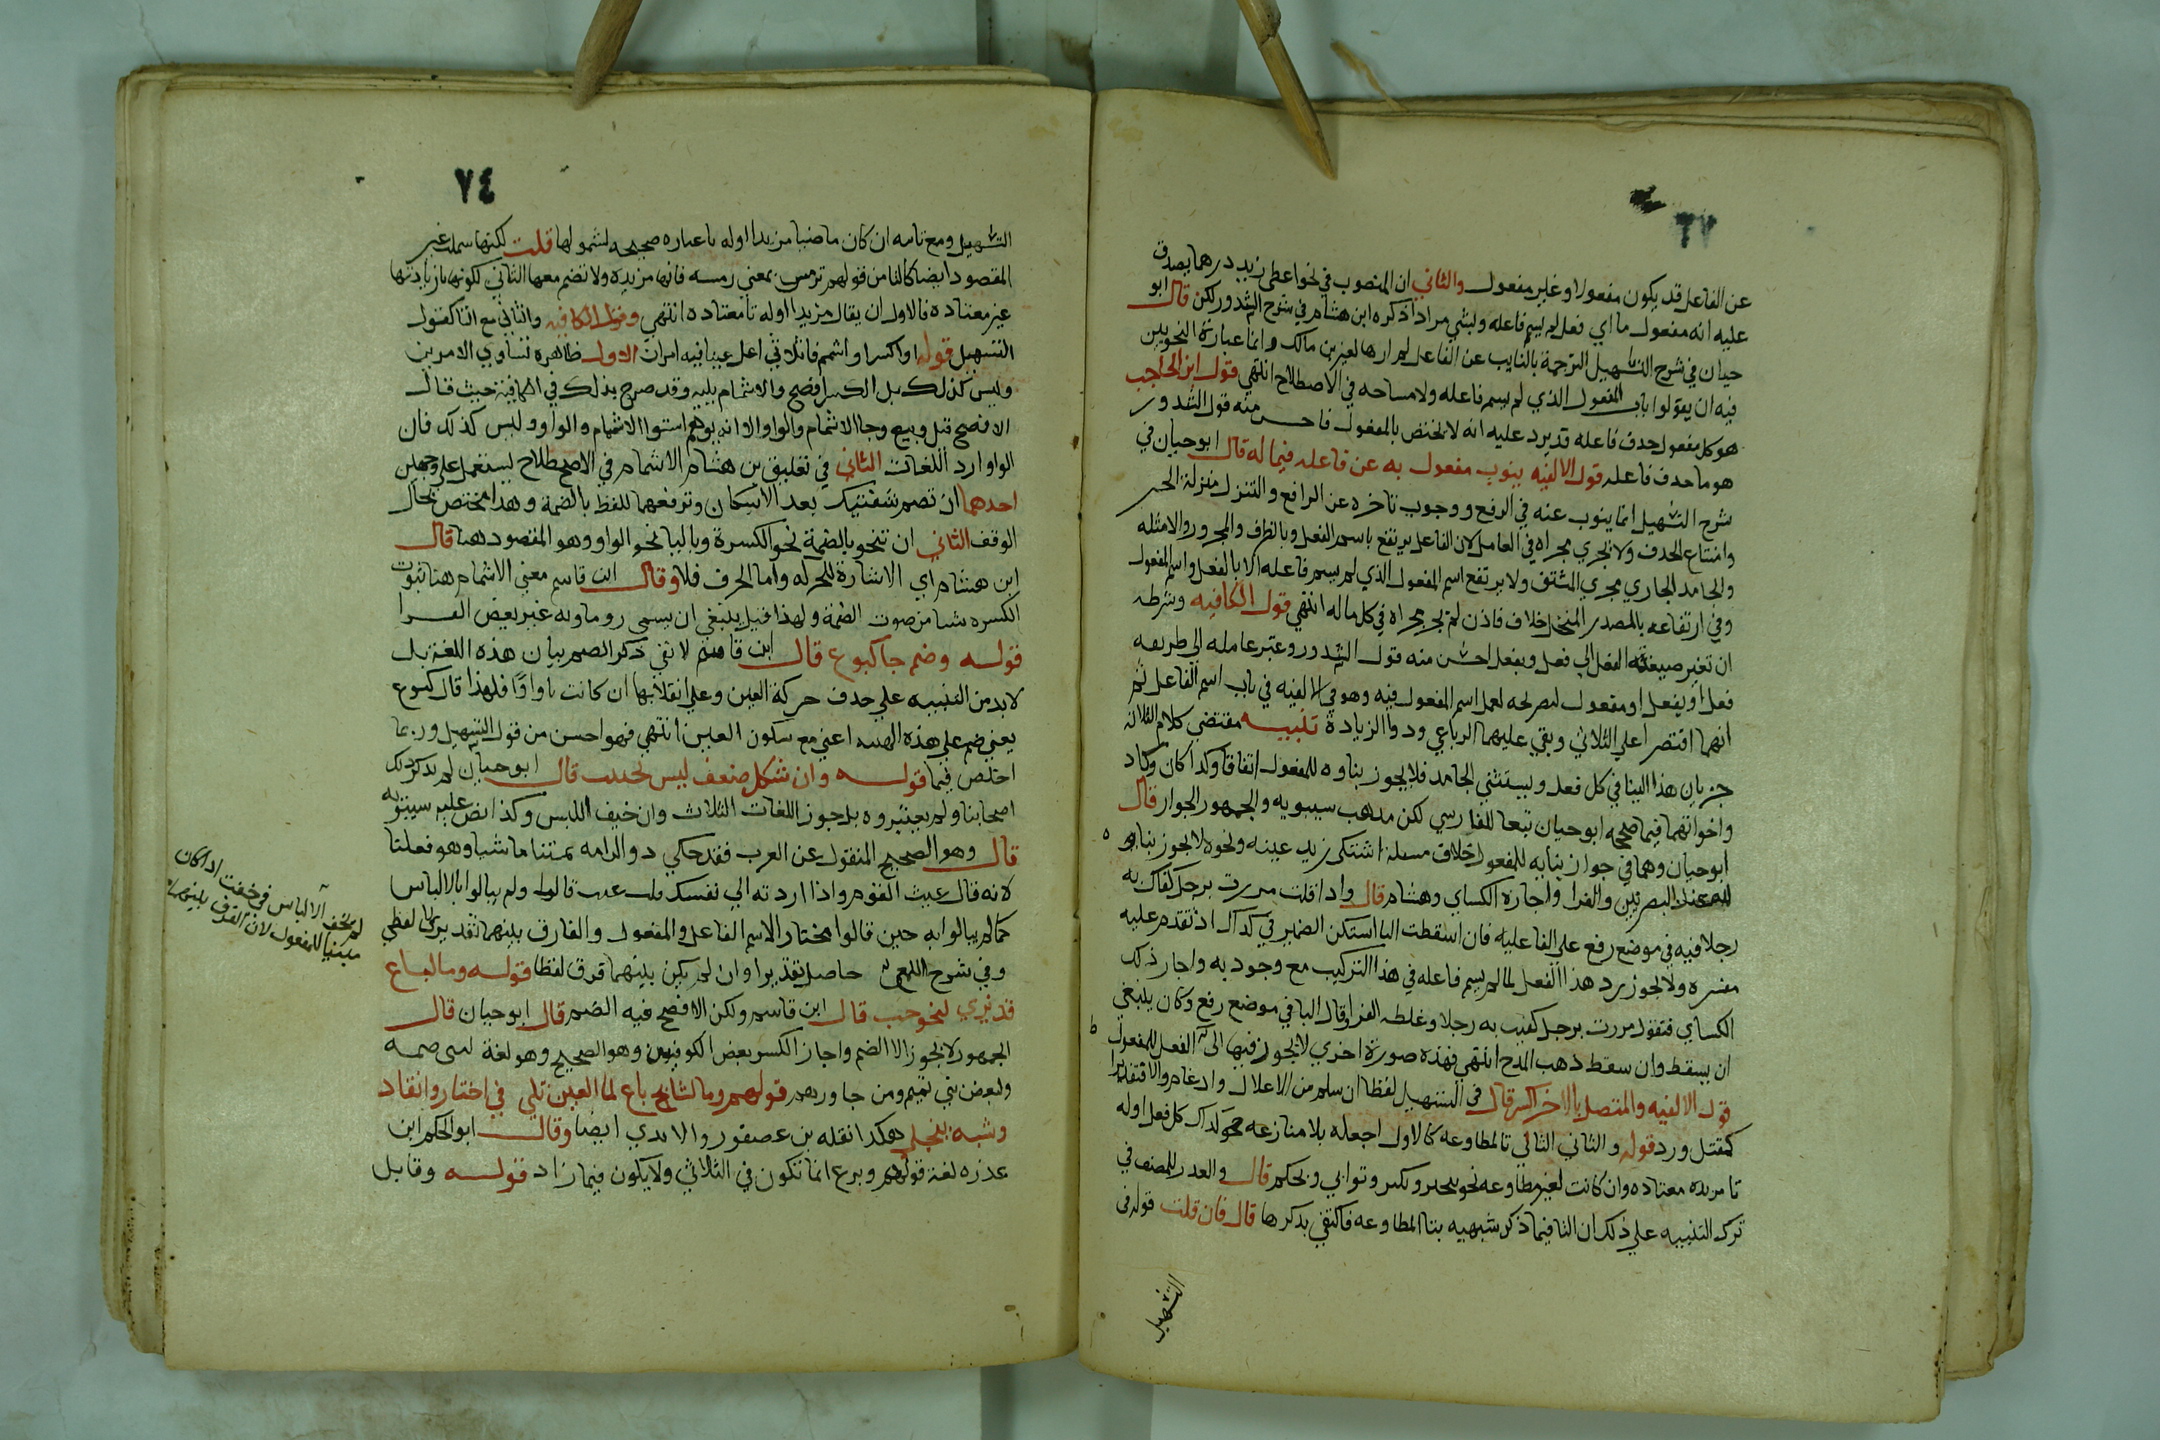 عن الفاعل قد يكون مفعولا وغير مفعول والثاني ان المنصوب في نحو اعطى زيد درهما يصدق
عليه انه مفعول ما اي فعل لم يسم فاعله وليس مرادا ذكره ابن هشام في شرح الشذور لكن قال ابو
حيان في شرح التسهيل الترجمة بالنايب عن الفاعل لم ارها لغير بن مالك وانما عبارة النحويين
فيه ان يقولوا باب المفعول الذي لم يسم فاعله ولا مشاحه في الاصطلاح انتهي قول ابن الحاجب
هو كل مفعول حدف فاعله قد يرد عليه انه لا يختص بالمفعول فاحسن منه قول الشدور
هو ما حدف فاعله قول الالفيه ينوب مفعول به عن فاعله فيما له قال ابو حيان في
شرح التسهيل انما ينوب عنه في الرفع ووجوب تاخره عن الرافع والتنزل منزلة الجز
وامتناع الحدف ولا يجري مجراه في العامل لان الفاعل يرتفع باسم الفعل وبالظرف والمجرور والامثله
والجامد الجاري مجري المشتق ولا يرتفع اسم المفعول الذي لم يسم فاعله الا بالفعل واسم المفعول
وفي ارتفاعه بالمصدر المنحل خلاف فاذن لم يجر مجراه في كل ماله انتهي قول الكافيه وشرطه
ان تغير صيغة الفعل الي فعل ويفعل احسن منه قول الشدور وغير عامله الي طريقه
فعل او يفعل او مفعول لتصريحه لعمل اسم المفعول فيه وهو في الالفيه في باب اسم الفاعل ثم
انهما اقتصرا علي الثلاثي وبقي عليهما الرباعي ودوا الزيادة تنبيه مقتضي كلام الثلاثة
جريان هذا البنا في كل فعل ويستثني الجامد فلا يجوز بناوه للمفعول اتفاقا وكدا كان وكاد
واخواتهما فيما صححه ابو حيان تبعا للفارسي لكن مدهب سيبويه والجمهور الجواز قال
ابو حيان وهما في جواز بنايه للمفعول خلاف مسئلة اشتكي زيد عينه ونحوه لا يجوز بناوه
عند البصريين والفرا واجازه الكساي وهشام قال واذا قلت مررت برجل كفاك به
رجلا فيه في موضع رفع علي الفاعليه فان اسقطت البا استكن الضمير في كذاك اذ تقدم عليه
مفسره ولا يجوز رد هذا الفعل لما لم يسم فاعله في هذا التركيب مع وجود به واجاز ذلك
الكساي فتقول مررت برجل كفيك به رجلا وغلطه الفرا وقال البا في موضع رفع وكان ينبغي
ان يسقط وان سقط ذهب المدح انتهي فهذه صورة اخري لا يجوز فيها الفعل للمفعول
قول الالفيه والمتصل بالاخر اكسر قال في التسهيل لفظا ان سلم من الاعلال وادغام والا فتقديرا
كقتل ورد قوله والثاني التالي تا المطاوعه كالاول اجعله بلا منازعه كل فعل اوله
تا مزيده معتاده وان كانت لغير مطاوعه نحو وتكبر وتواني وتحكم قال والعذر للمصنف في
ترك التنبيه علي ذلك ان التا فيما ذكر شبهيه بتا المطاوعه فاكتفي بدكرها قال فان قلت قوله في
التسهيل
٧٤
التسهيل ومع تاميه ان كان ماضيا مزيدا اوله تا عباره صحيحه لشمولها قلت لكنها شملت غير
المقصود ايضا كالتا من قولهم ترمس بمعني رمسه فانها مزيده ولا تضم معها الثاني لكونها زيادتها
غير معتاده فالاولي ان يقال مزيدا اوله تا معتاده انتهي وقول الكافيه والثاني مع التا كقول
التسهيل قوله او اكسر او اشمم فا ثلاثي اعل عينا فيه امران الاول ظاهره تساوي الامرين
وليس كذلك بل الكسر افصح والاشمام يليه وقد صرح بذلك في الكافية حيث قال
الافصح قيل وبيع وجا الاشمام والواو الا انه يوهم استوا الاشمام والواو وليس كذلك فان
الواو اردا اللغات الثاني في تعليق بن هشام الاشمام في الاصطلاح يستعمل علي وجهين
احدهما ان تضم شفتيك بعد الاسكان وترفعهما للفظ بالضمة وهذا مختص بحال
الوقف الثاني ان تنحو بالضمة نحو الكسرة وباليا نحو الواو وهو المقصود هنا قال
ابن هشام اي الاشارة للحركه واما الحرف فلا وقال ابن قاسم معني الاشمام هنا شوب
الكسره شيا من صوت الضمة ولهذا قيل ينبغي ان يسمي روما وبه عبر بعض القرا
قوله وضم جا كبوع قال ابن قاسم لا نفي ذكر الضم ببيان هذه اللغة بل
لابد من التنبيه علي حدف حركة العين وعلي انقلابها ان كانت يا واوا فلهذا قال كبوع
يعني ضم علي هذه الهيئه اعني مع سكون العين انتهي فهو احسن من قول التسهيل وربما
اخلص فيما قوله وان بشكل ضعف ليس تجتنب قال ابو حيان لم يدكر ذلك
اصحابنا ولم يعتبروه بل جوز اللغات الثلاث وان خيف اللبس وكذا نص عليه سيبويه
قال وهو الصحيح المنقول عن العرب فقد حكي دو الرمه متنا ما شينا وهو فعلتا
لانه قال غيث القوم واذا اردته الي نفسك قلت غيث قالوا ولم يبالوا بالالباس
كما لم يبالوا به حين قالوا مختار لاسم الفاعل والمفعول والفارق بينهما تقديري لا لفظي
وفي شرح اللمع حاصل تقديرا وان لم يكن بينهما فرق لفظا قوله وما لباع
قد يري لنحو حب قال ابن قاسم ولكن الافصح فيه الضم قال ابو حيان قال
الجمهور لا يجوز الا الضم واجاز الكسر بعض الكوفيين وهو الصحيح وهو لغة لبني ضبه
ولبعض بني تميم ومن جاورهم قولهم وما لفا باع لما العين تلي في اختار وانقاد
وشبه ينجلي هكدا نقله بن عصفور والابدي ايضا وقال ابو الحكم ابن
عذره لغة قولهم وبوع انما تكون في الثلاثي ولا يكون فيما زاد قوله وقابل
لم يخف الالباس في خفت اذا كان
مبنيا للمفعول لان الفرق بينهما